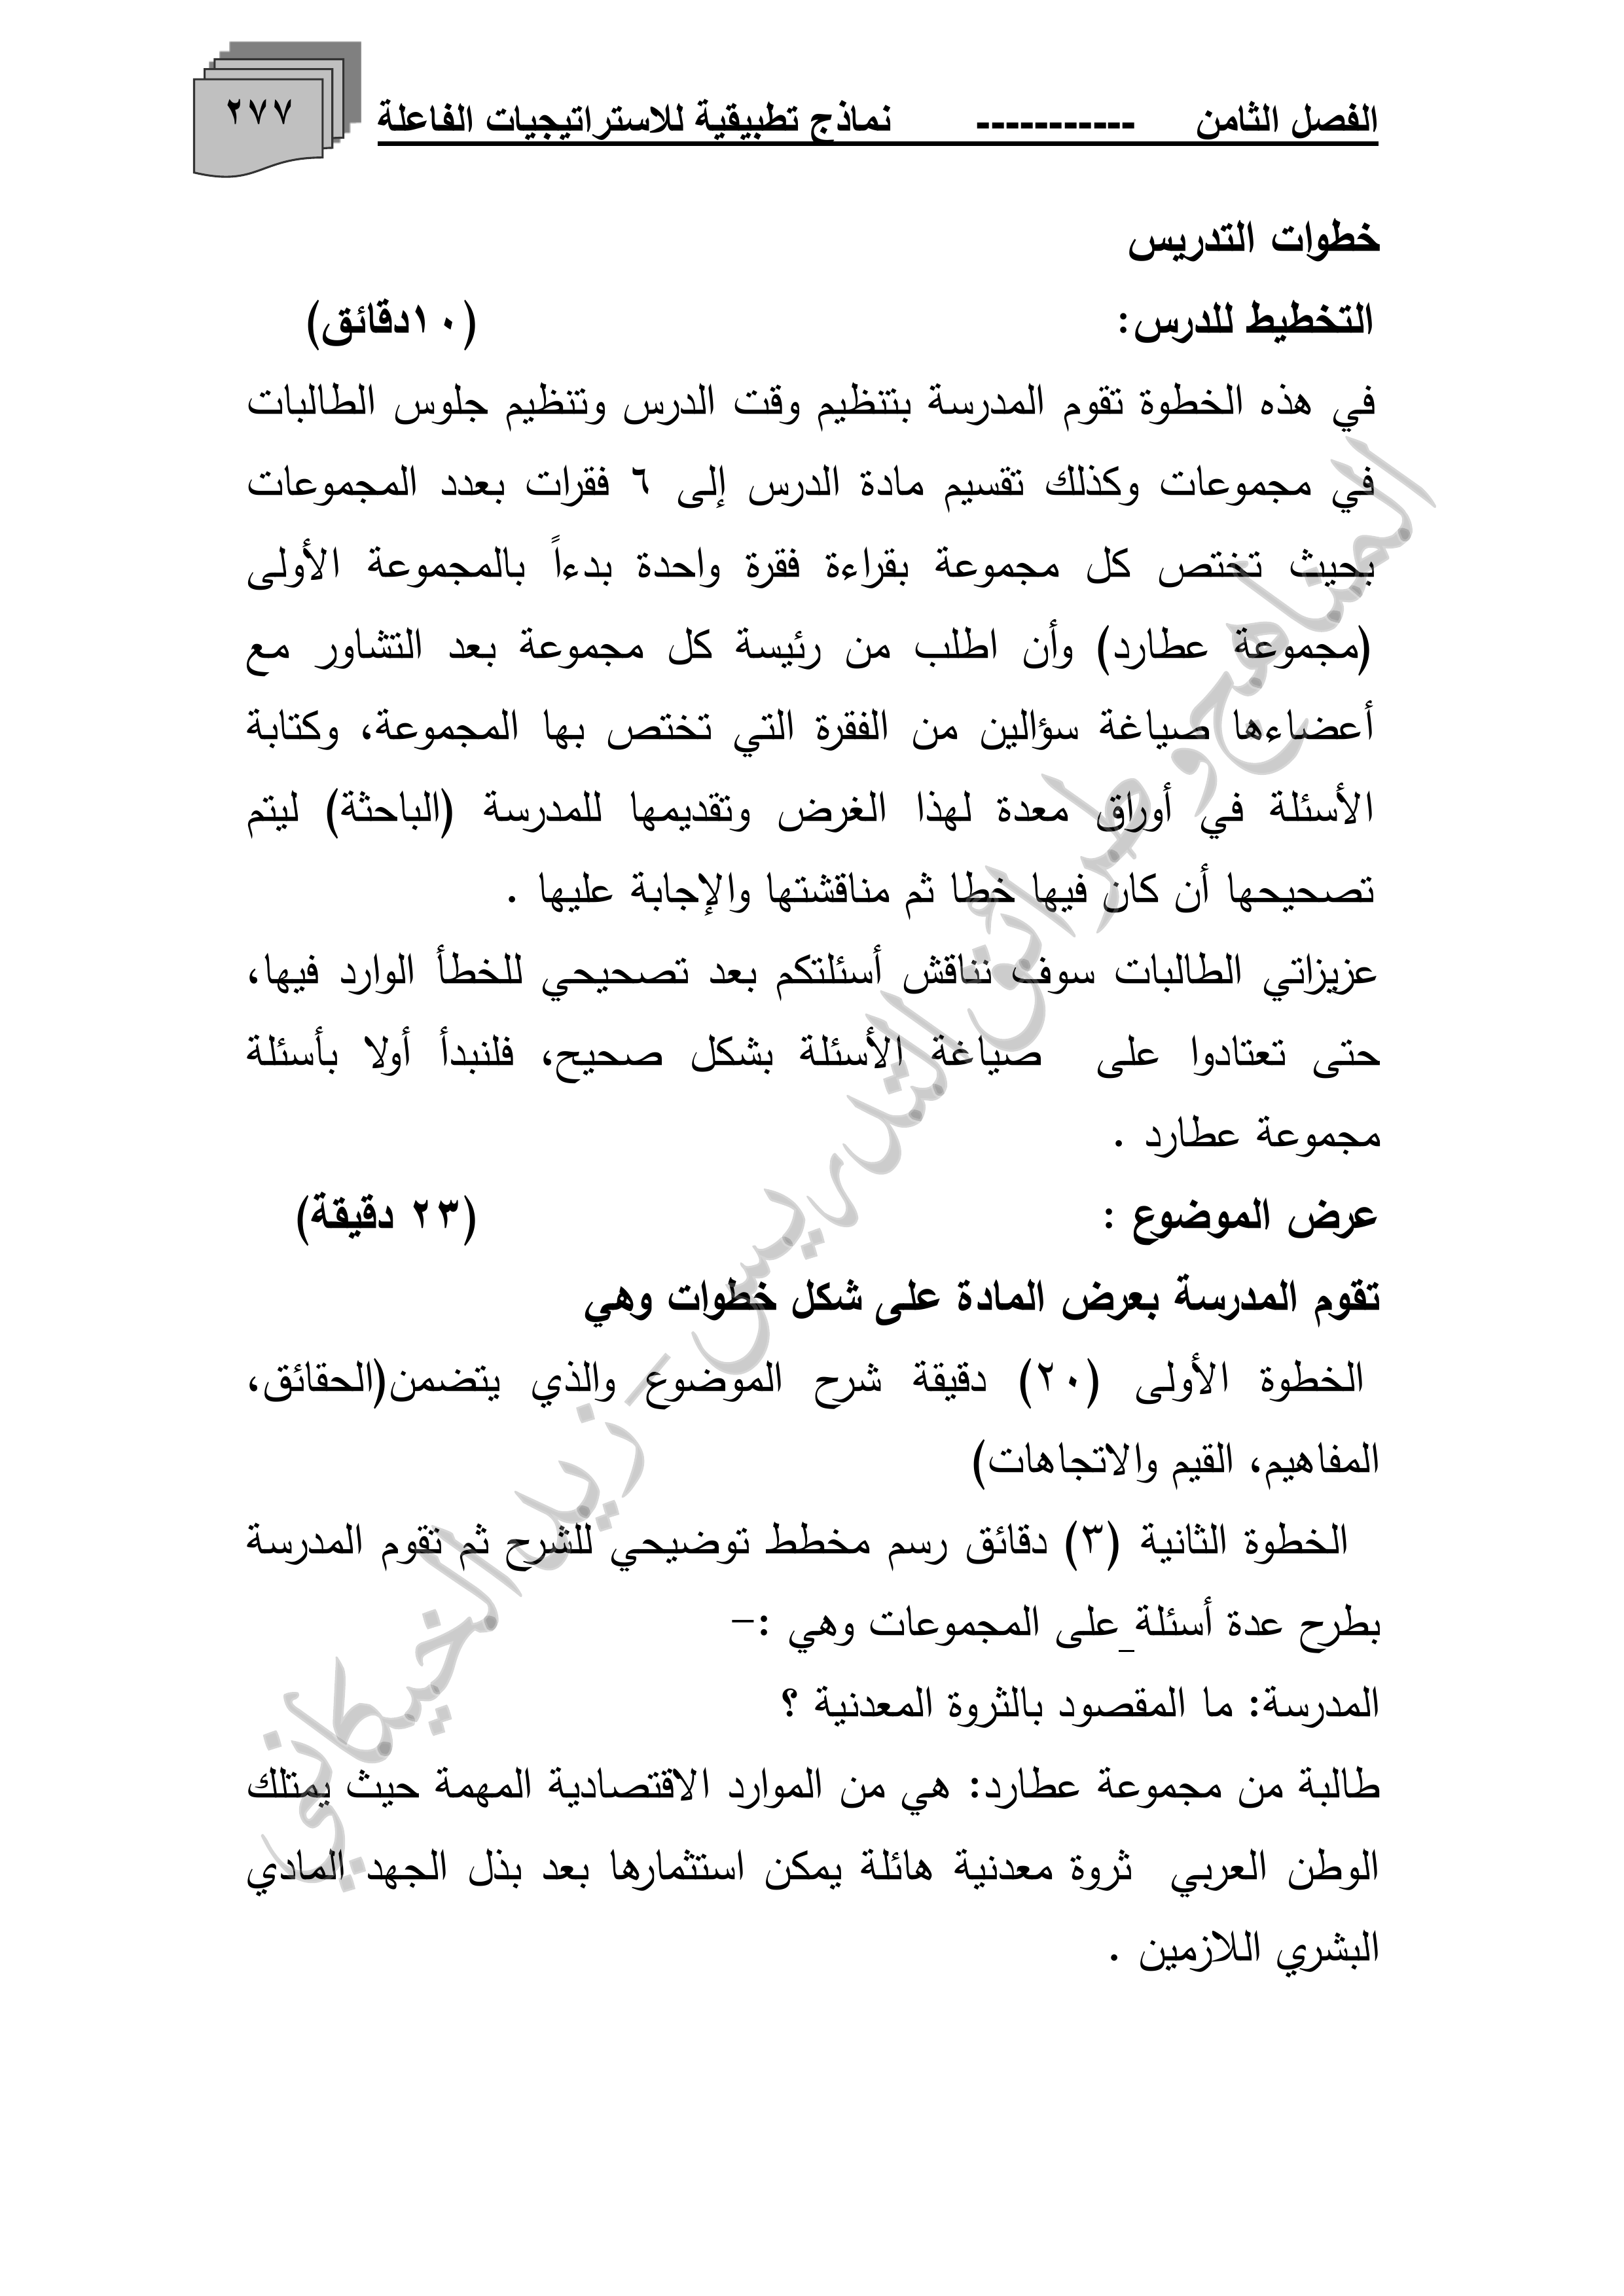 الفصل الثامن ----------- نماذج تطبيقية للاستراتيجيات الفاعلة
٢٧٧
خطوات التدريس
التخطيط للدرس: (١٠دقائق)
في هذه الخطوة تقوم المدرسة بتنظيم وقت الدرس وتنظيم جلوس الطالبات
في مجموعات وكذلك تقسيم مادة الدرس إلى ٦ فقرات بعدد المجموعات
بحيث تختص كل مجموعة بقراءة فقرة واحدة بدءاً بالمجموعة الأولى
(مجموعة عطارد) وأن اطلب من رئيسة كل مجموعة بعد التشاور مع
أعضاءها صياغة سؤالين من الفقرة التي تختص بها المجموعة، وكتابة
الأسئلة في أوراق معدة لهذا الغرض وتقديمها للمدرسة (الباحثة) ليتم
تصحيحها أن كان فيها خطا ثم مناقشتها والإجابة عليها .
عزيزاتي الطالبات سوف نناقش أسئلتكم بعد تصحيحي للخطأ الوارد فيها،
حتى تعتادوا على صياغة الأسئلة بشكل صحيح، فلنبدأ أولا بأسئلة
مجموعة عطارد .
عرض الموضوع : (٢٣ دقيقة)
تقوم المدرسة بعرض المادة على شكل خطوات وهي
الخطوة الأولى (٢٠) دقيقة شرح الموضوع والذي يتضمن(الحقائق،
المفاهيم، القيم والاتجاهات)
الخطوة الثانية (٣) دقائق رسم مخطط توضيحي للشرح ثم تقوم المدرسة
بطرح عدة أسئلة على المجموعات وهي :-
المدرسة: ما المقصود بالثروة المعدنية ؟
طالبة من مجموعة عطارد: هي من الموارد الاقتصادية المهمة حيث يمتلك
الوطن العربي ثروة معدنية هائلة يمكن استثمارها بعد بذل الجهد المادي
البشري اللازمين .
المناهج وطرائق التدريس - زيد الخيكاني